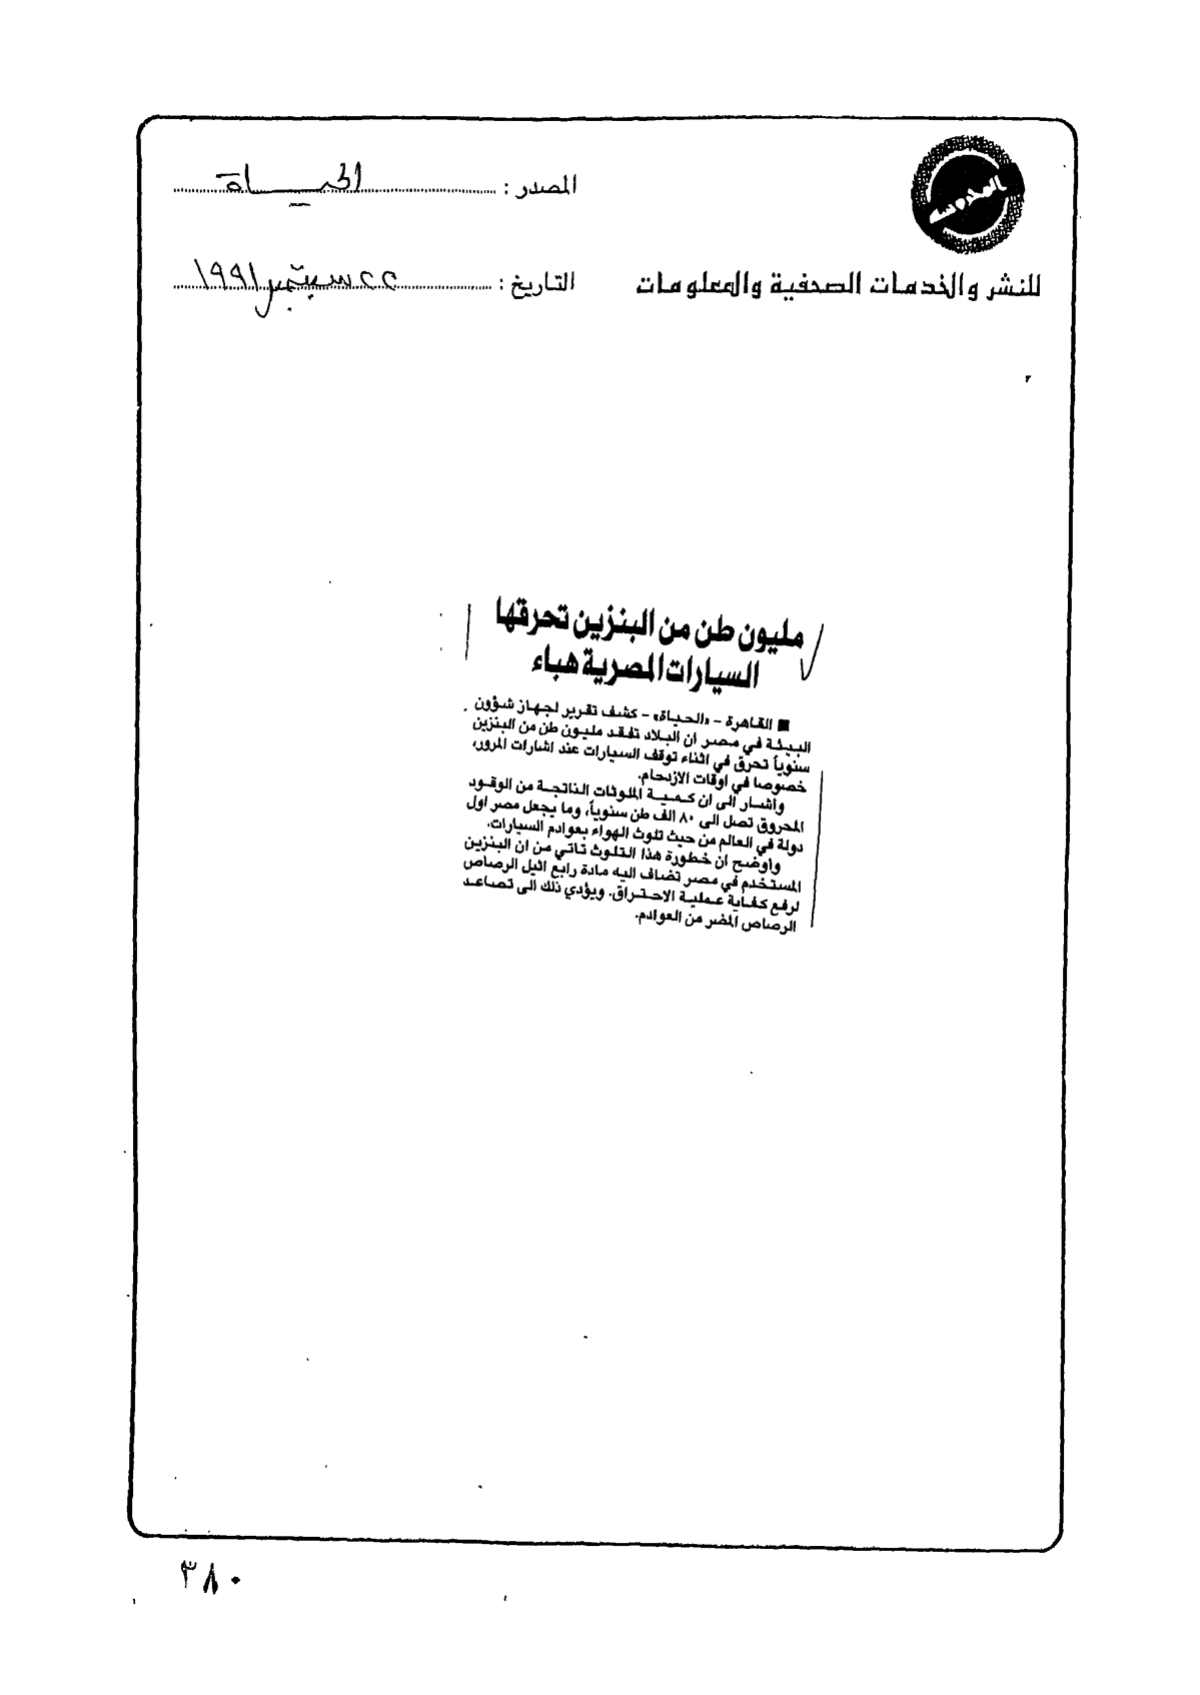 المحروسة
المصدر : الحيـــــاة
للنشر والخدمات الصحفية والمعلومات
التاريخ : ٢٢ سبتمبر ١٩٩١
مليون طن من البنزين تحرقها
السيارات المصرية هباء
■ القاهرة - «الحياة» - كشف تقرير لجهاز شؤون
البيئة في مصر ان البلاد تفقد مليون طن من البنزين
سنوياً تحرق في اثناء توقف السيارات عند اشارات المرور،
خصوصا في اوقات الازدحام.
واشار الى ان كمية الملوثات الناتجة من الوقود
المحروق تصل الى ٨٠ الف طن سنوياً، وما يجعل مصر اول
دولة في العالم من حيث تلوث الهواء بعوادم السيارات.
واوضح ان خطورة هذا التلوث تاتي من ان البنزين
المستخدم في مصر تضاف اليه مادة رابع اثيل الرصاص
لرفع كفاية عملية الاحتراق. ويؤدي ذلك الى تصاعد
الرصاص المضر من العوادم.
٣٨٠